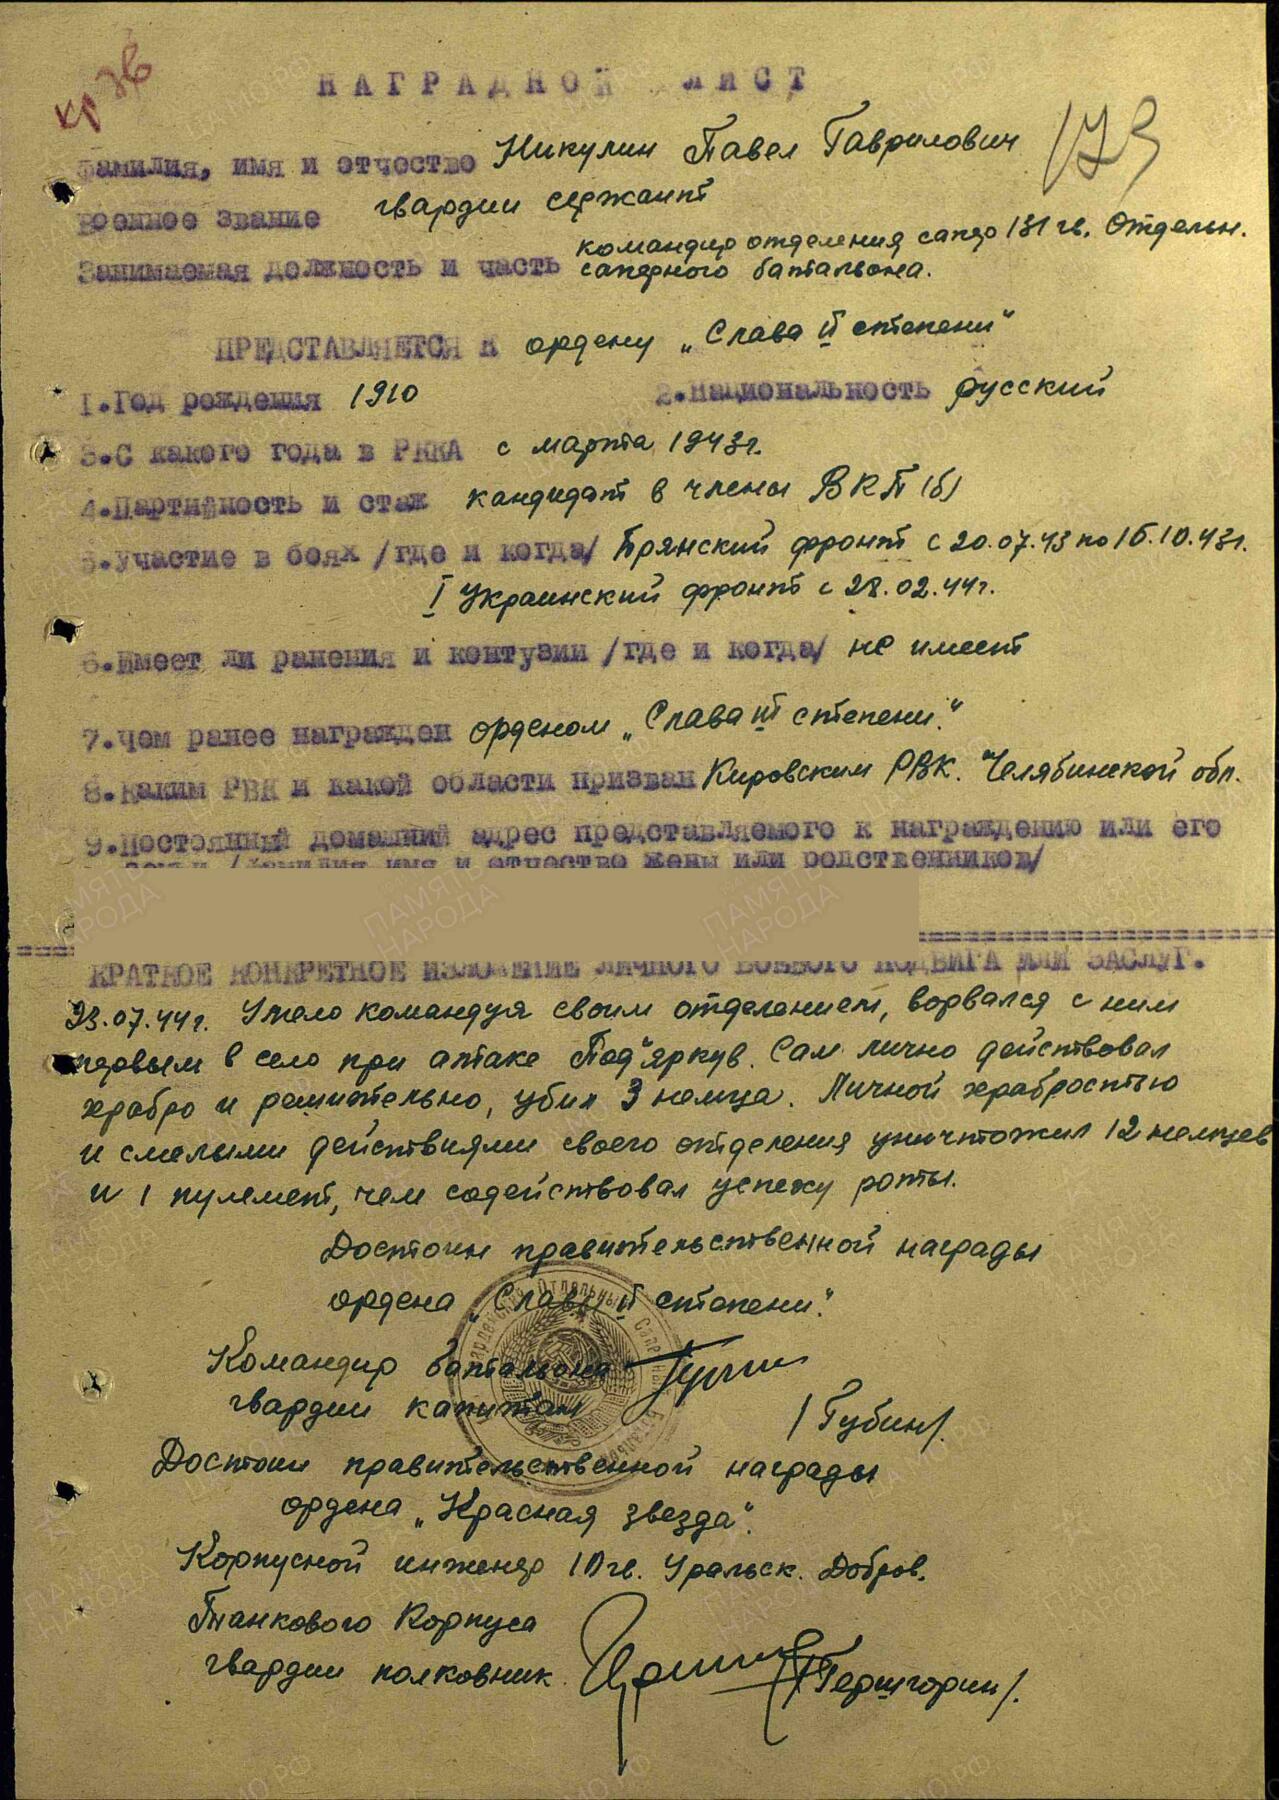 кр зв
НАГРАДНОЙ ЛИСТ
173
Фамилия, имя и отчество Никулин Павел Гаврилович
Военное звание гвардии сержант
Занимаемая должность и часть командир отделения сапер 131 гв. Отдельн.
саперного батальона.
ПРЕДСТАВЛЯЕТСЯ К ордену „Слава II степени"
1.Год рождения 1910 2.Национальность русский
3.С какого года в РККА с марта 1943г.
4.Партийность и стаж кандидат в члены ВКП(б)
5.Участие в боях /где и когда/ Брянский фронт с 20.07.43 по 15.10.43г.
I Украинский фронт с 28.02.44г.
6.Имеет ли ранения и контузии /где и когда/ не имеет
7.Чем ранее награжден орденом „Слава III степени."
8.Каким РВК и какой области призван Кировским РВК. Челябинской обл.
9.Постоянный домашний адрес представляемого к награждению или его
семьи /фамилия имя и отчество жены или родственников/
КРАТКОЕ КОНКРЕТНОЕ ИЗЛОЖЕНИЕ ЛИЧНОГО БОЕВОГО ПОДВИГА ИЛИ ЗАСЛУГ.
23.07.44г. Умело командуя своим отделением, ворвался с ним
первым в село при атаке Под"яркув. Сам лично действовал
храбро и решительно, убил 3 немца. Личной храбростью
и смелыми действиями своего отделения уничтожил 12 немцев
и 1 пулемет, чем содействовал успеху роты.
Достоин правительственной награды
ордена „Слава II степени."
Командир батальона
гвардии капитан /Губин/.
Достоин правительственной награды
ордена „Красная звезда".
Корпусной инженер 10 гв. Уральск. Добров.
Танкового Корпуса
гвардии полковник /Гершгорин/.
Гвардейский Отдельный Саперный Батальон
ПАМЯТЬ НАРОДА
ЦА МО РФ